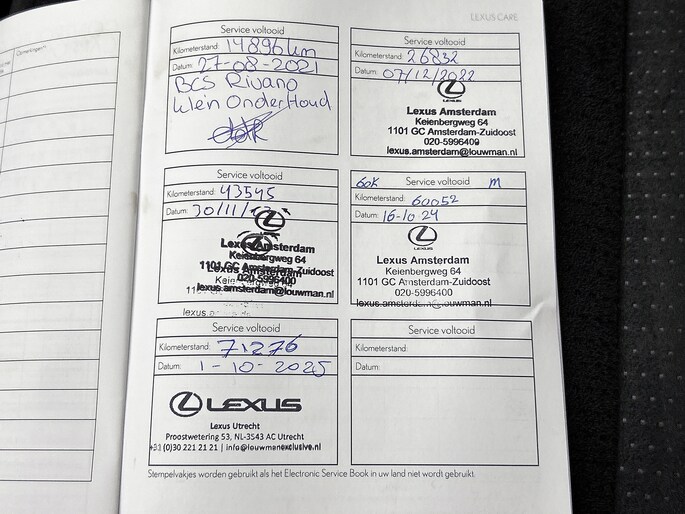 Opmerkingen**
LEXUS CARE
Service voltooid
Kilometerstand: 14896 km
Datum: 27-08-2021
BCS Rivano
klein Onderhoud
Service voltooid
Kilometerstand: 26832
Datum: 07/12/2022
LEXUS
Lexus Amsterdam
Keienbergweg 64
1101 GC Amsterdam-Zuidoost
020-5996400
lexus.amsterdam@louwman.nl
Service voltooid
Kilometerstand: 43545
Datum: 30/11/
Lexus Amsterdam
Keienbergweg 64
1101 GC Amsterdam-Zuidoost
020-5996400
lexus.amsterdam@louwman.nl
60K Service voltooid M
Kilometerstand: 60052
Datum: 16-10 24
LEXUS
Lexus Amsterdam
Keienbergweg 64
1101 GC Amsterdam-Zuidoost
020-5996400
lexus.amsterdam@louwman.nl
Service voltooid
Kilometerstand: 71276
Datum: 1-10-2025
LEXUS
Lexus Utrecht
Proostwetering 53, NL-3543 AC Utrecht
+31 (0)30 221 21 21 | info@louwmanexclusive.nl
Service voltooid
Kilometerstand:
Datum:
Stempelvakjes worden gebruikt als het Electronic Service Book in uw land niet wordt gebruikt.